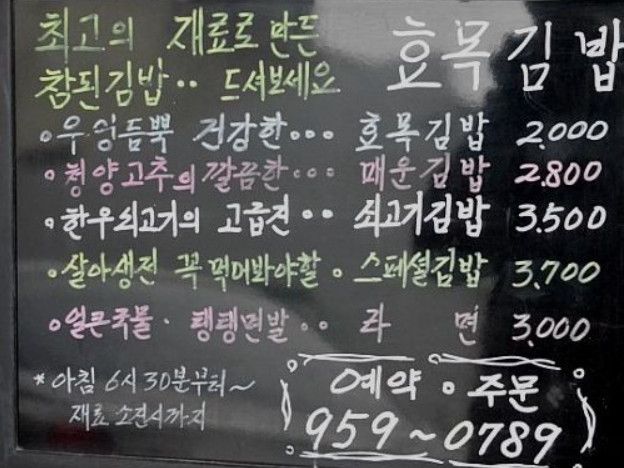 최고의 재료로 만든
참된김밥·· 드셔보세요
효목김밥
·우엉듬뿍 건강한··· 효목김밥 2,000
·청양고추의 깔끔한··· 매운김밥 2,800
·한우쇠고기의 고급진·· 쇠고기김밥 3,500
·살아생전 꼭 먹어봐야할· 스페셜김밥 3,700
·얼큰국물· 탱탱면발·· 라면 3,000
*아침 6시 30분부터~
재료 소진시까지
예약·주문
959~0789